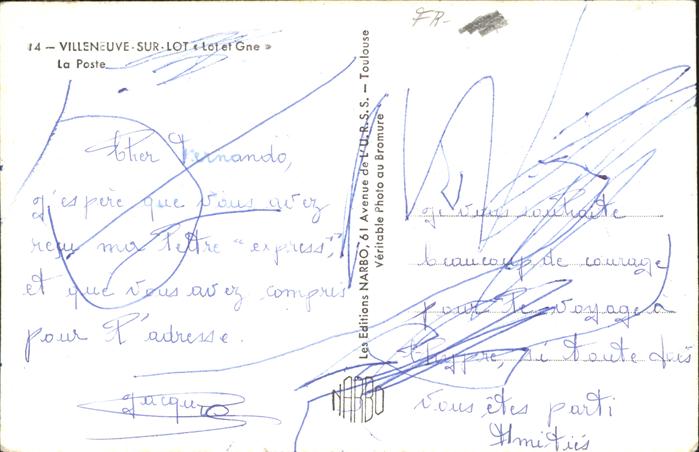 FR-
14 — VILLENEUVE-SUR-LOT « Lot et Gne »
La Poste
Cher Fernando,
j'espère que vous avez
reçu ma lettre "express",
et que vous avez compris
pour l'adresse.
Jacques
Les Editions NARBO, 61 Avenue de L'U.R.S.S. — Toulouse
Véritable Photo au Bromure
NARBO
je vous souhaite
beaucoup de courage
pour le voyage à
Chypre, si toute fois
vous êtes parti
Amitiés